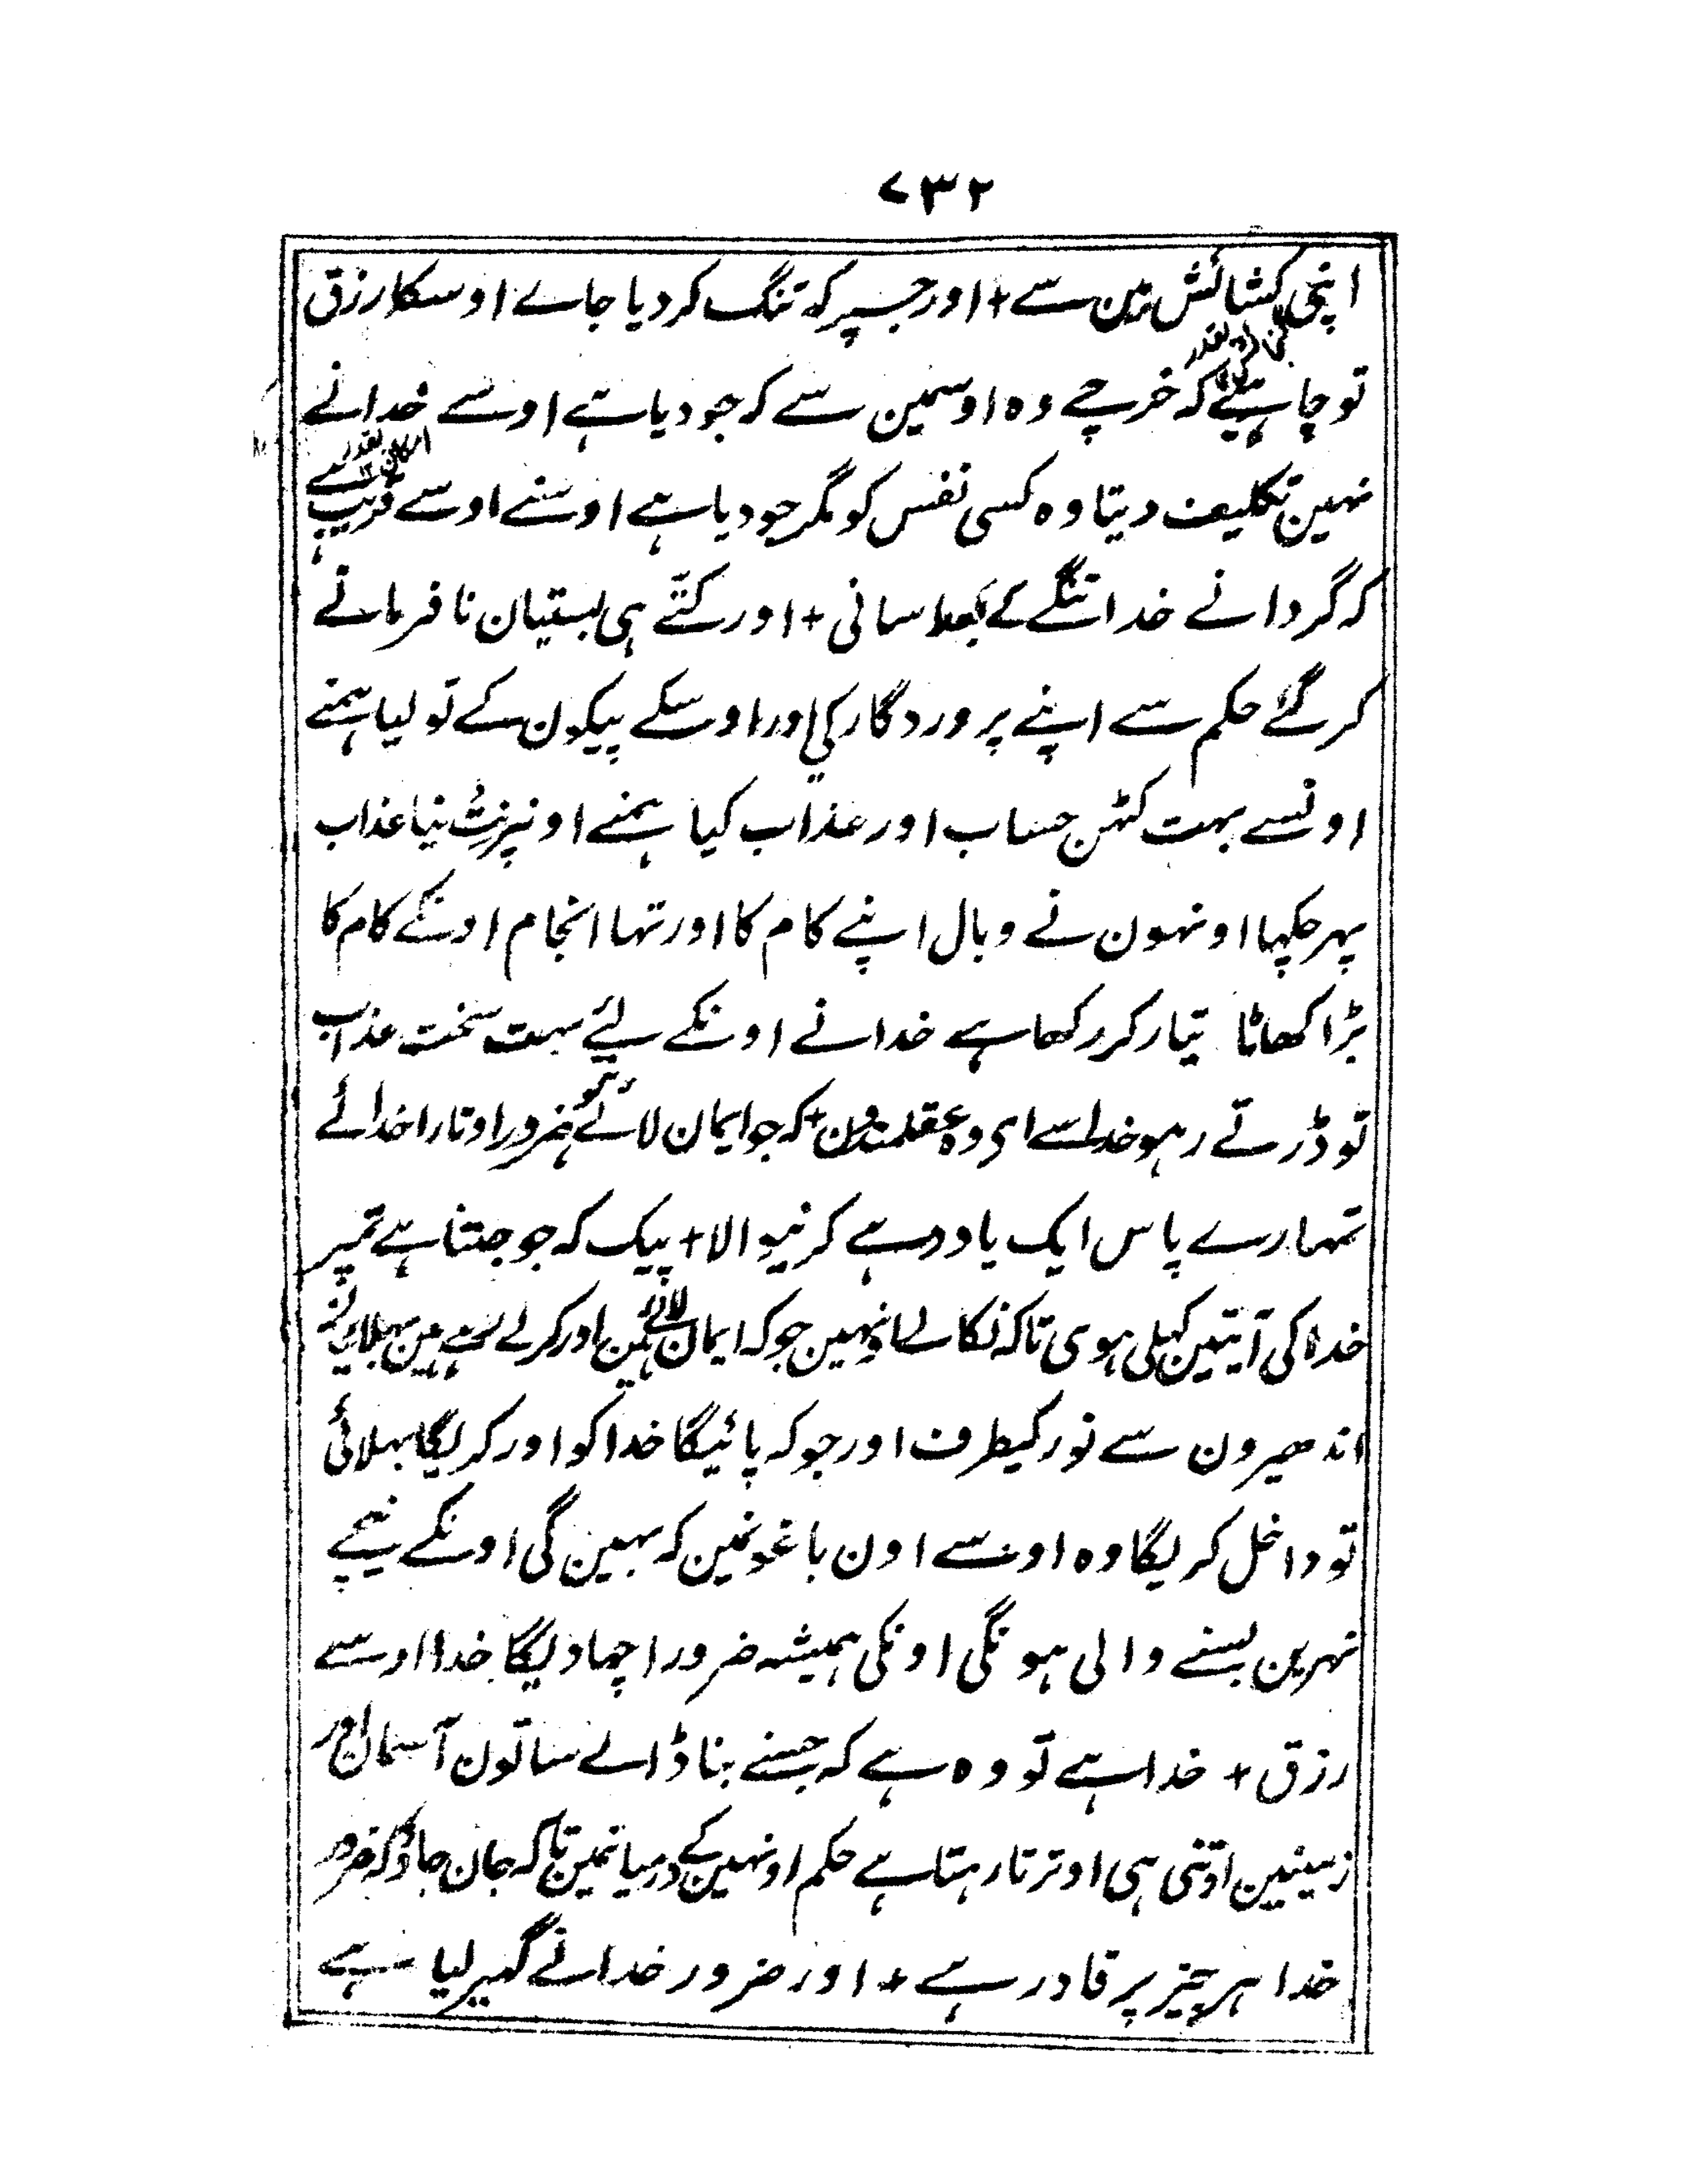 ۷۳۲
اپنی کشائش مین سے + اور جسپر کہ تنگ کر دیا جاے اوسکا رزق
تو چاہیے کہ خرچے وہ اوسمین سے کہ جو دیا ہے اوسے خدا نے
نہین تکلیف دیتا وہ کسی نفس کو مگر جو دیا ہے اوسنے اوسے قریب ہے
کہ گردانے خدا تنگے کے بعد اسانی + اور کتے ہی بستیان نافرمانے
کر گئے حکم سے اپنے پروردگار کی اور اوسکے پیکون کے تو لیا ہمنے
اونسے بہت کٹہن حساب اور عذاب کیا ہمنے اونپر نیا عذاب
پہر چکہا اونہون نے وبال اپنے کام کا اور تہا انجام اونکے کام کا
بڑا گھاٹا تیار کر رکھا ہے خدا نے اونکے لیے بہت سخت عذاب
تو ڈرتے رہو خدا سے ای وہ عقلمندون + کہ جو ایمان لائے ضرور اوتارا خدا نے
تمہارے پاس ایک یاد دہے کرنیوالا + پیک کہ جو جتنا ہے تمپر
خدا کی آیتین کہلی ہوی تاکہ نکالے اونہین جو کہ ایمان لائے ہین اور کرلے رہے ہین بہلائی
اندھیرون سے نور کیطرف اور جو کہ پائیگا خدا کو اور کریگا بہلائی
تو داخل کریگا وہ اوسے اون باغونمین کہ بہین گی اونکے نیچے
نہرین بسنے والی ہونگی اونکی ہمیشہ ضرور اچھا دیگا خدا اوسے
رزق + خدا ہے تو وہ ہے کہ جسنے بنا ڈالے ساتون آسمان اور
زمینین اوتنی ہی اوترتا رہتا ہے حکم اونہین کے درمیانمین تاکہ جان جاو کہ ضرور
خدا ہر چیز پر قادر ہے + اور ضرور خدا نے گھیر لیا ہے